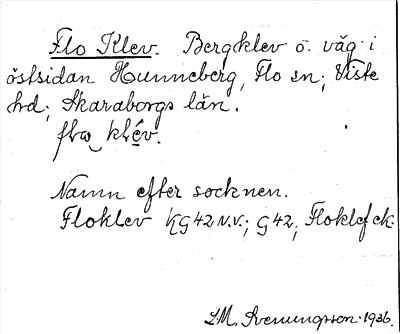 Flo Klev. Bergklev o. väg i
östsidan Hunneberg, Flo sn; Viste
hd; Skaraborgs län.
klév.
Namn efter socknen.
Floklev KG 42 N.V.; G 42, Floklef ek.
I.M. Svenungsson 1936.